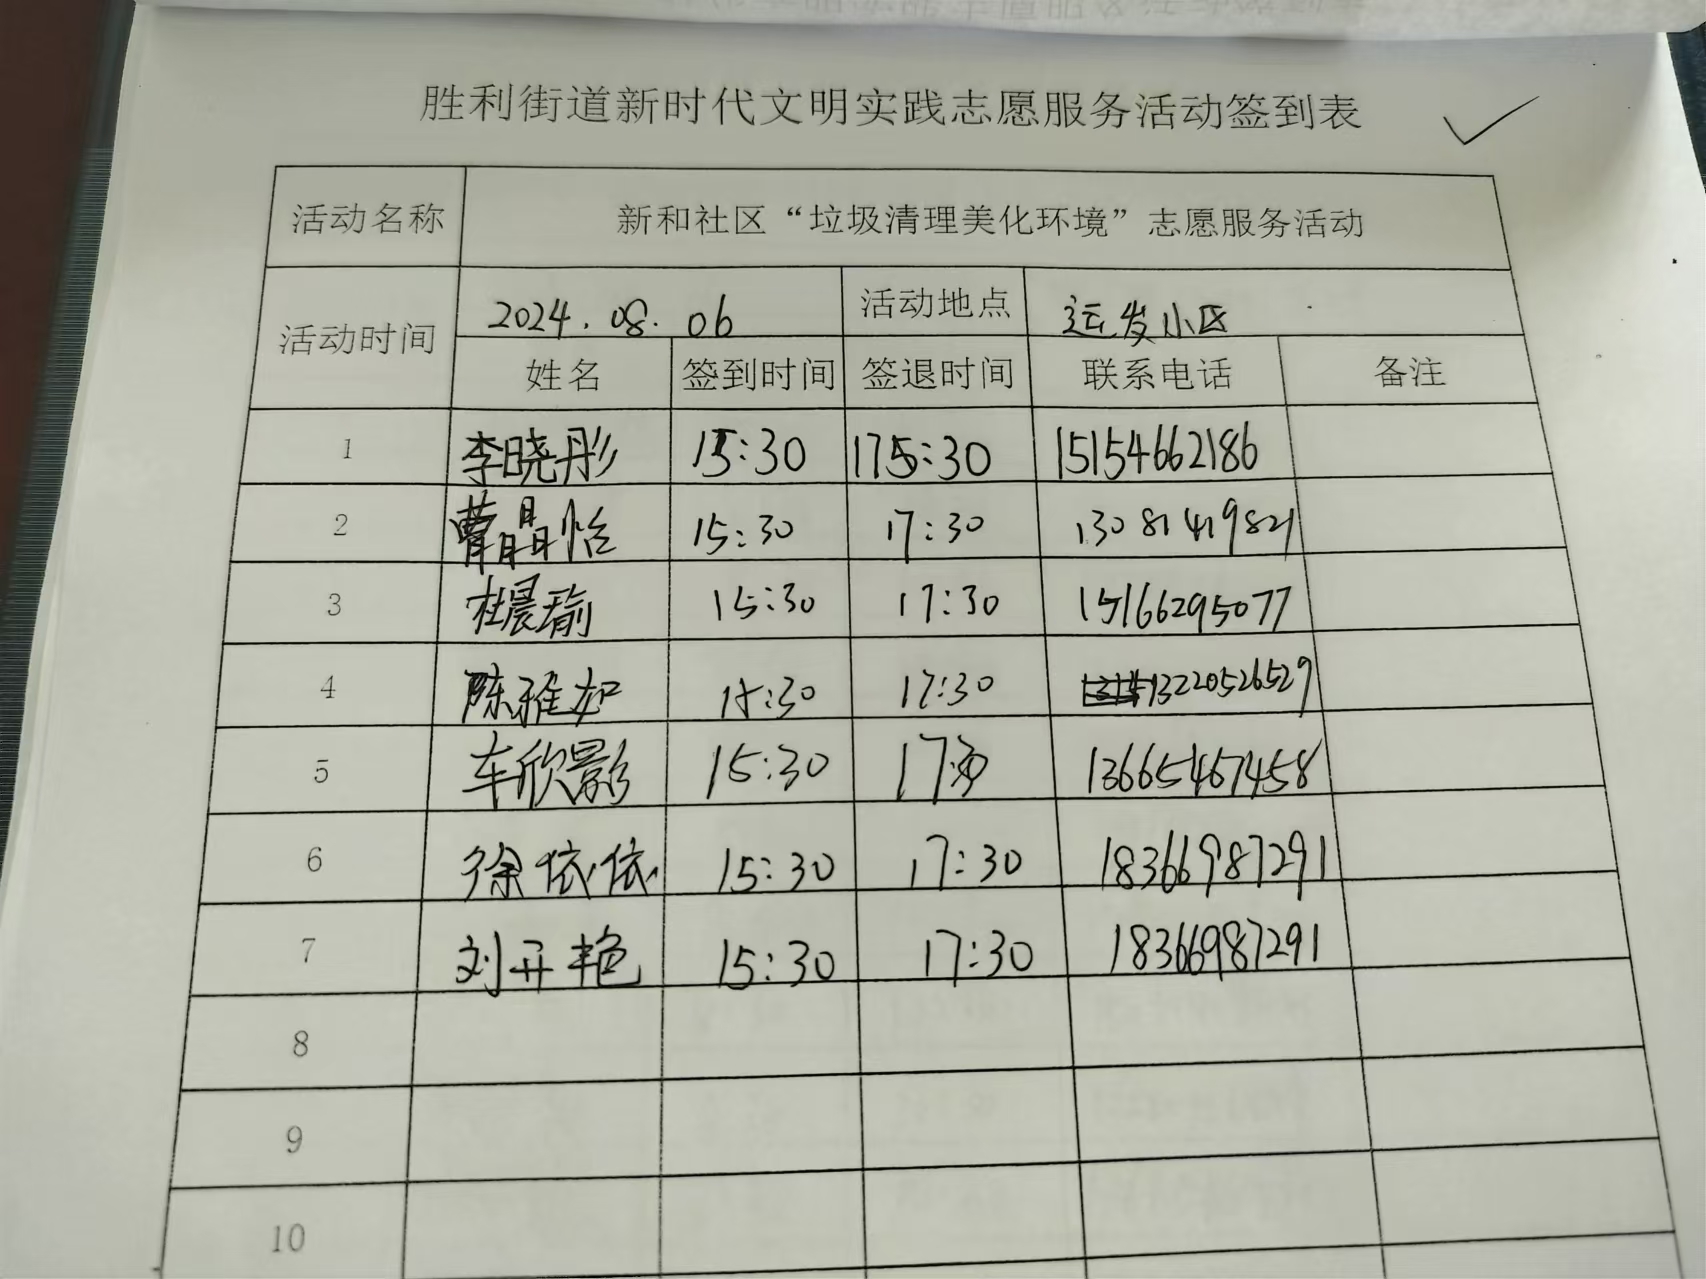 胜利街道新时代文明实践志愿服务活动签到表
活动名称 新和社区“垃圾清理美化环境”志愿服务活动
活动时间 2024.08.06 活动地点 运发小区
姓名 签到时间 签退时间 联系电话 备注
1 李晓彤 15:30 175:30 15154662186
2 曹晶怡 15:30 17:30 13081419821
3 杜晨瑜 15:30 17:30 15166295077
4 陈雅如 15:30 17:30 13220526529
5 车欣影 15:30 17:30 13665467458
6 徐依依 15:30 17:30 18366987291
7 刘开艳 15:30 17:30 18366987291
8
9
10